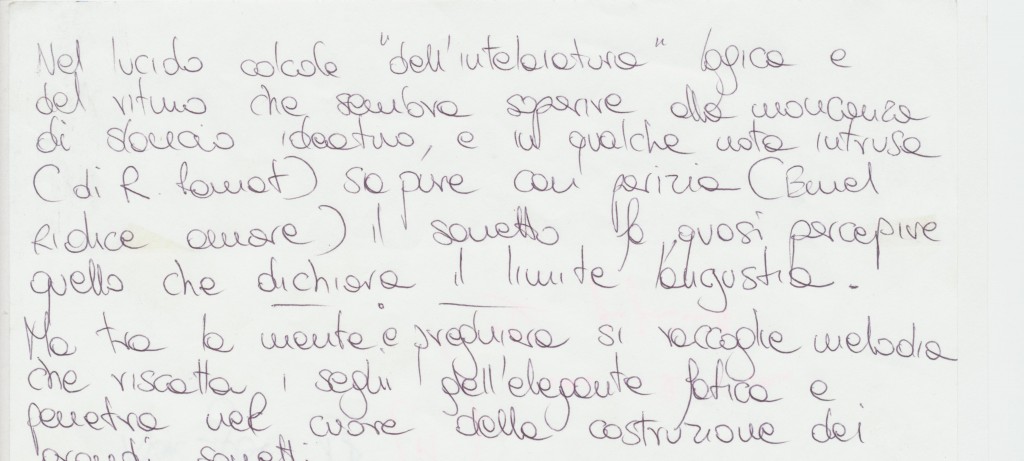 Nel lucido calcole "dell'intelaiatura" logica e
del ritmo che sembra sopperire alla mancanza
di slancio ideativo, e in qualche nota intrusa
(di R. ) sia pure con perizia (
ridice amore) il sonetto fa quasi percepire
quello che dichiara il limite l'angustia.
Ma tra la mente e preghiera si raccoglie melodia
che riscatta i segni dell'elegante fatica e
penetra nel cuore della costruzione dei
grandi sonetti